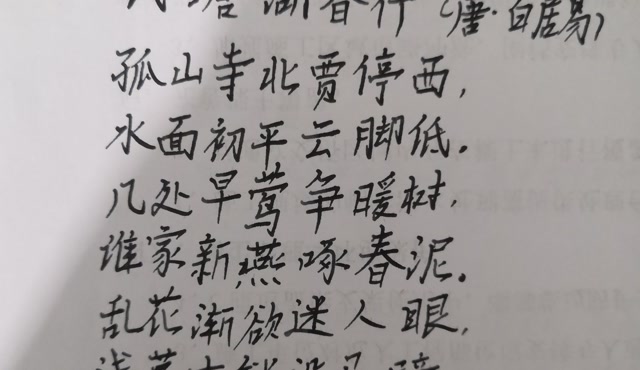 湖春行 (唐·白居易)
孤山寺北贾停西,
水面初平云脚低。
几处早莺争暖树,
谁家新燕啄春泥。
乱花渐欲迷人眼,